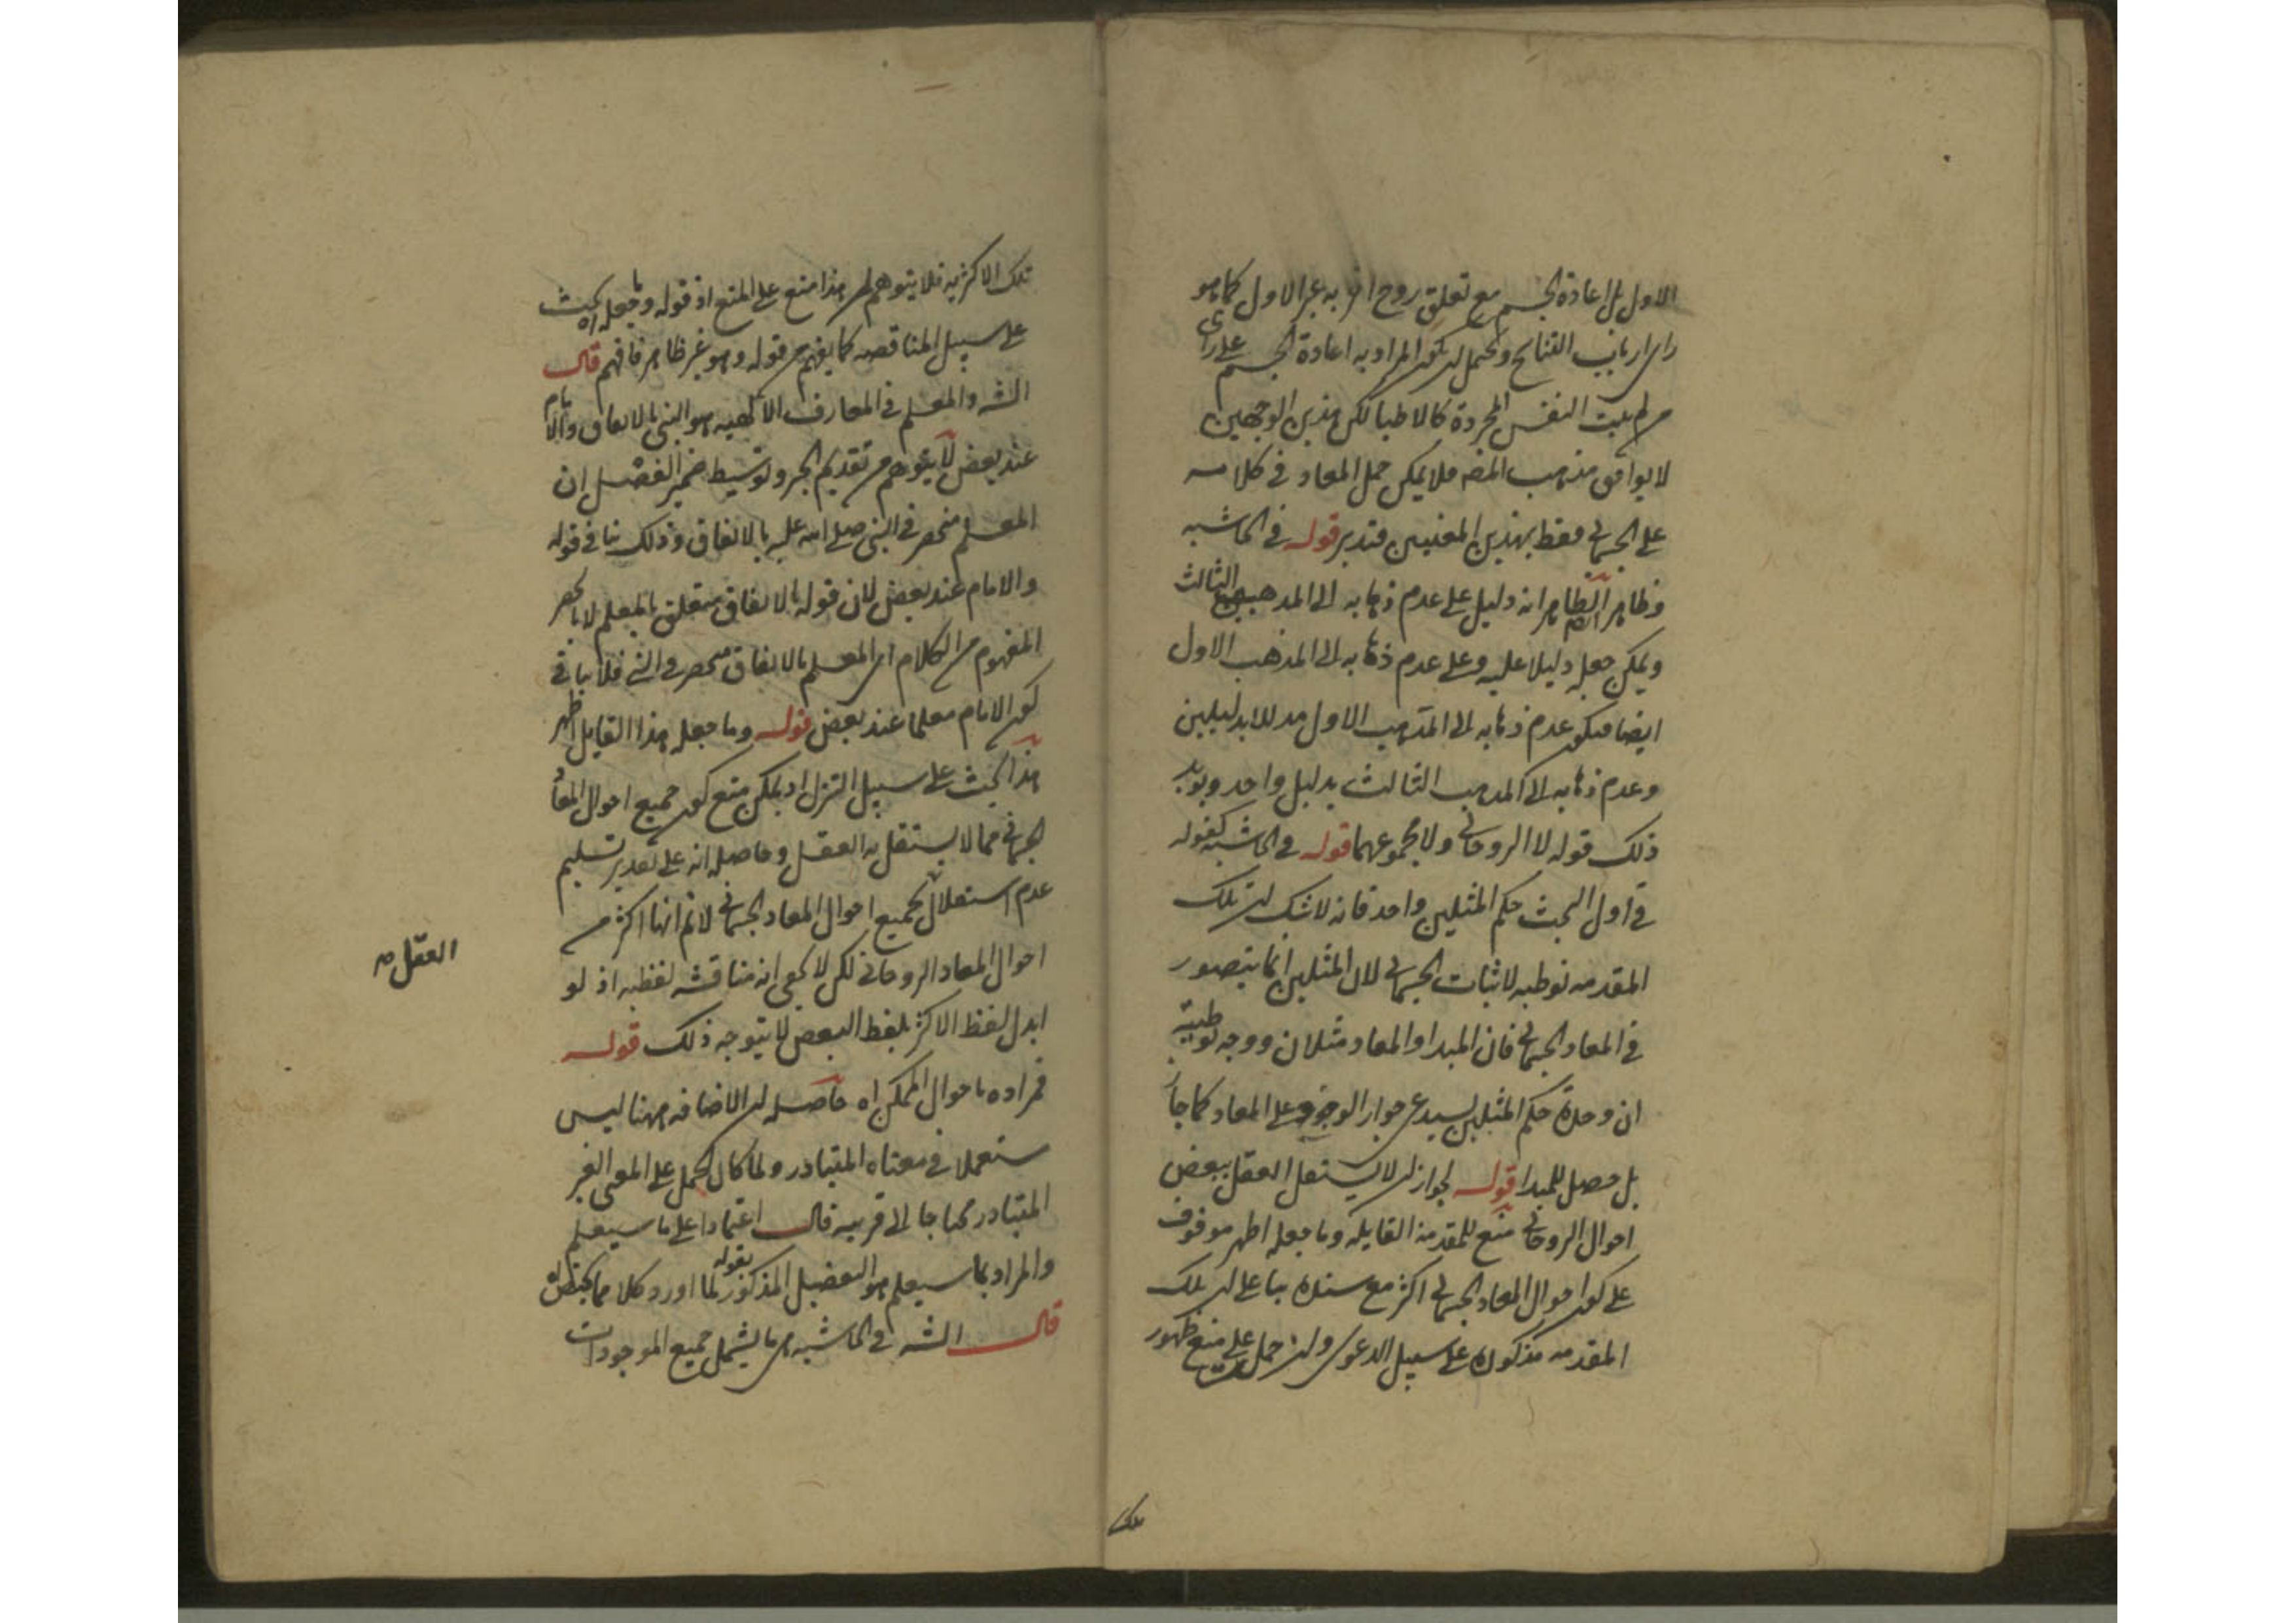 الاول بل اعادة الجسم مع تعلق روح اخر به غير الاول كما هو
راى ارباب التناسخ ويحتمل ان يكون المراد به اعادة الجسم على راى
من لم يثبت النفس المجردة كالاطبا لكن هذين الوجهين
لا يوافق مذهب المصـ فلا يمكن حمل المعاد فى كلامه
على الجسمانى فقط بهذين المعنيين فتدبر قوله فى الحاشيه
وظاهر الظاهر انه دليل على عدم ذهابه الى المذهب الثالث
ويمكن جعله دليلا عليه وعلى عدم ذهابه الى المذهب الاول
ايضا فيكون عدم ذهابه الى المذهب الاول مدللا بدليلين
وعدم ذهابه الى المذهب الثالث بدليل واحد ويويد
ذلك قوله لا الروحانى ولا مجموعهما قوله فى الحاشيه كقوله
فى اول البحث حكم المثلين واحد فانه لا شك ان تلك
المقدمه توطيه لاثبات الجسمانى لان المثلين انما يتصور
فى المعاد الجسمانى فان المبدا والمعاد مثلان ووجه توطية
ان وحدة حكم المثلين يستدعى جواز الوجود على المعاد كما جاز
بل حصل للمبدا قوله لجواز ان لا يستقل العقل ببعض
احوال الروحانى منع للمقدمة القايله وما جعله اظهر موقوف
على كون احوال المعاد الجسمانى اكثر مع سنده بنا على ان تلك
المقدمه مذكوره على سبيل الدعوى وان حمل على منع ظهور
تلك
تلك الاكثريه فلا يتوهم ان هذا منع على المنع اذ قوله وما جعله اه بحث
على سبيل المناقضه كما يفهم من قوله وهو غير ظاهر فافهم قال
الشـ والمعلم فى المعارف الالهيه هو النبى بالاتفاق والامام
عند بعض لا يتوهم من تقديم الخبر وتوسيط ضمير الفصل ان
المعلم منحصر فى النبى صلى الله عليه بالاتفاق وذلك ينافى قوله
والامام عند بعض لان قوله بالاتفاق متعلق بالمعلم لا بالحصر
المفهوم من الكلام اى المعلم بالاتفاق منحصر فى النبى فلا ينافى
كون الامام معلما عند بعض قوله وما جعله هذا القايل اظهر
هذا بحث على سبيل التنزل اذ يمكن منع كون جميع احوال المعاد
الجسمانى مما لا يستقل به العقل وحاصله انه على تقدير تسليم
عدم استقلال بجميع احوال المعاد الجسمانى لا نم انها اكثر من
العقل صح
احوال المعاد الروحانى لكن لا يخفى انه مناقشه لفظيه اذ لو
ابدل لفظ الاكثر بلفظ البعض لا يتوجه ذلك قوله
فمراده باحوال الممكن اه حاصله ان الاضافه ههنا ليس
مستعملا فى معناه المتبادر ولما كان الحمل على المعنى الغير
المتبادر محتاجا الى قرينه قال اعتمادا على ما سيعلم
والمراد بما سيعلم هو التفصيل المذكور بقوله لما اورد كلا مما يختص اه
قال الشـ فى الحاشيه اى ما يشمل جميع الموجودات